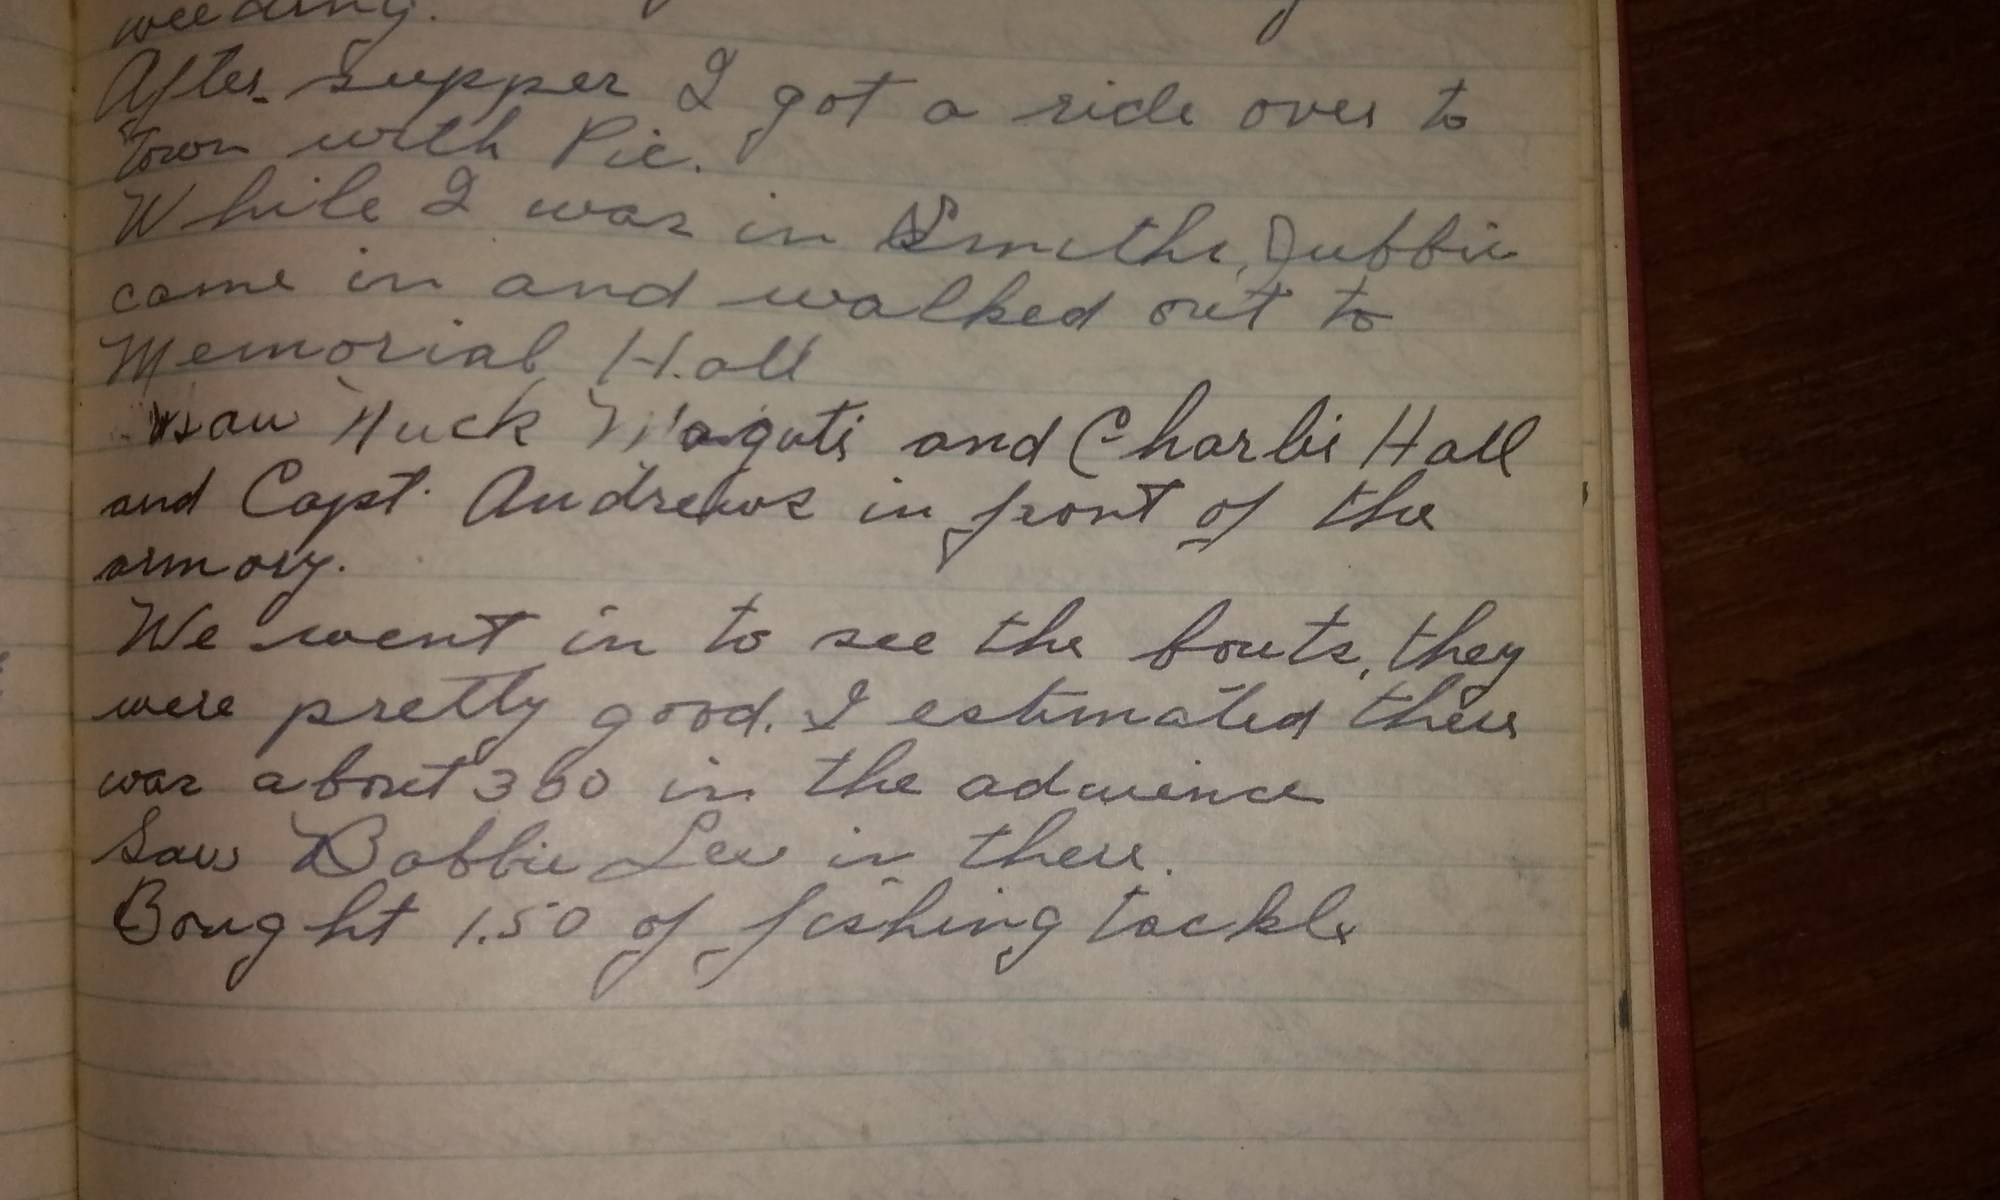 weeding.
After supper I got a ride over to
town with Pie.
While I was in Smiths, Dubbie
came in and walked out to
Memorial Hall
saw Huck and Charlie Hall
and Capt. Andrews in front of the
armory.
We went in to see the bouts, they
were pretty good. I estimated there
was about 300 in the adwience
Saw Bobbie Lee in there.
Bought 1.50 of fishing tackle